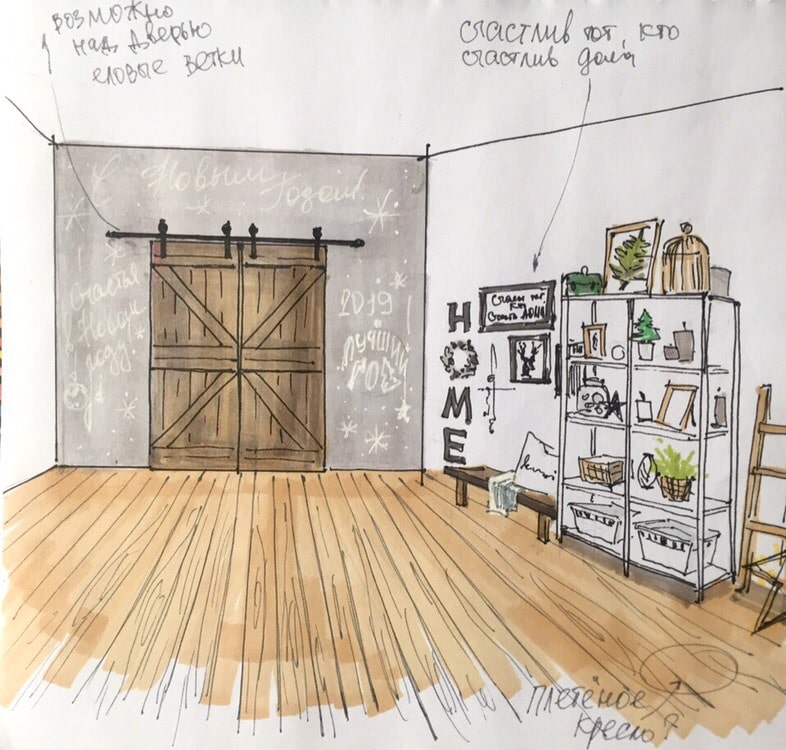 возможно
над дверью
еловые ветки
счастлив тот, кто
счастлив дома
С Новым Годом!
Счастья
в Новом
году!
2019
Лучший
год
HOME
Счастлив тот,
кто
Счастлив ДОМА
Плетёное
кресло?